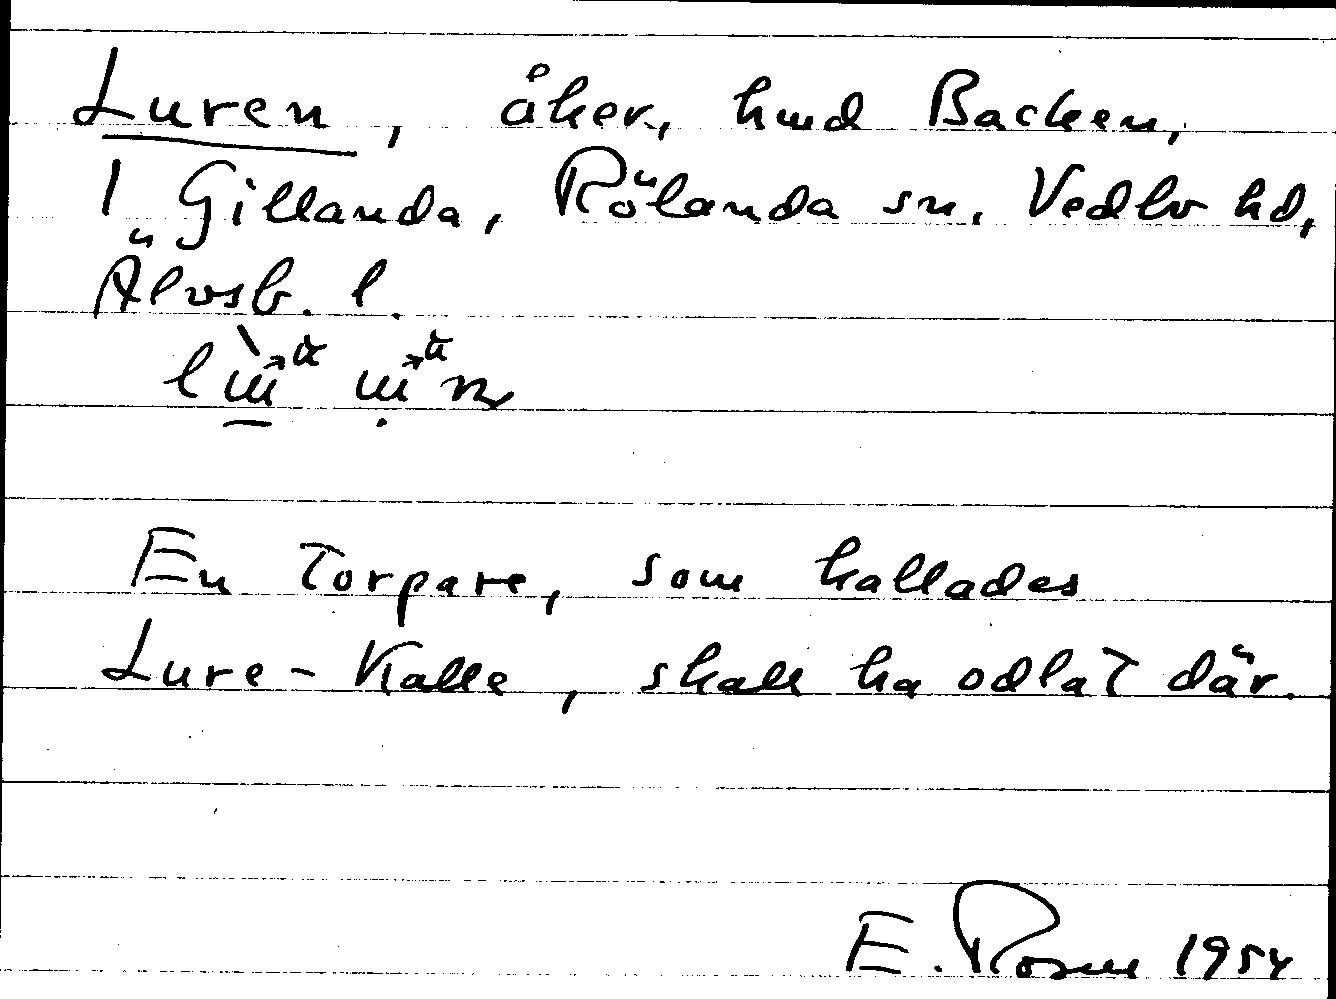 Luren, åker, hmd Backen,
1 Gillanda, Rölanda sn. Vedbo hd,
Älvsb. l.
En Torpare, som kallades
Lure-Kalle, skall ha odlat där.
E. Rosell 1954